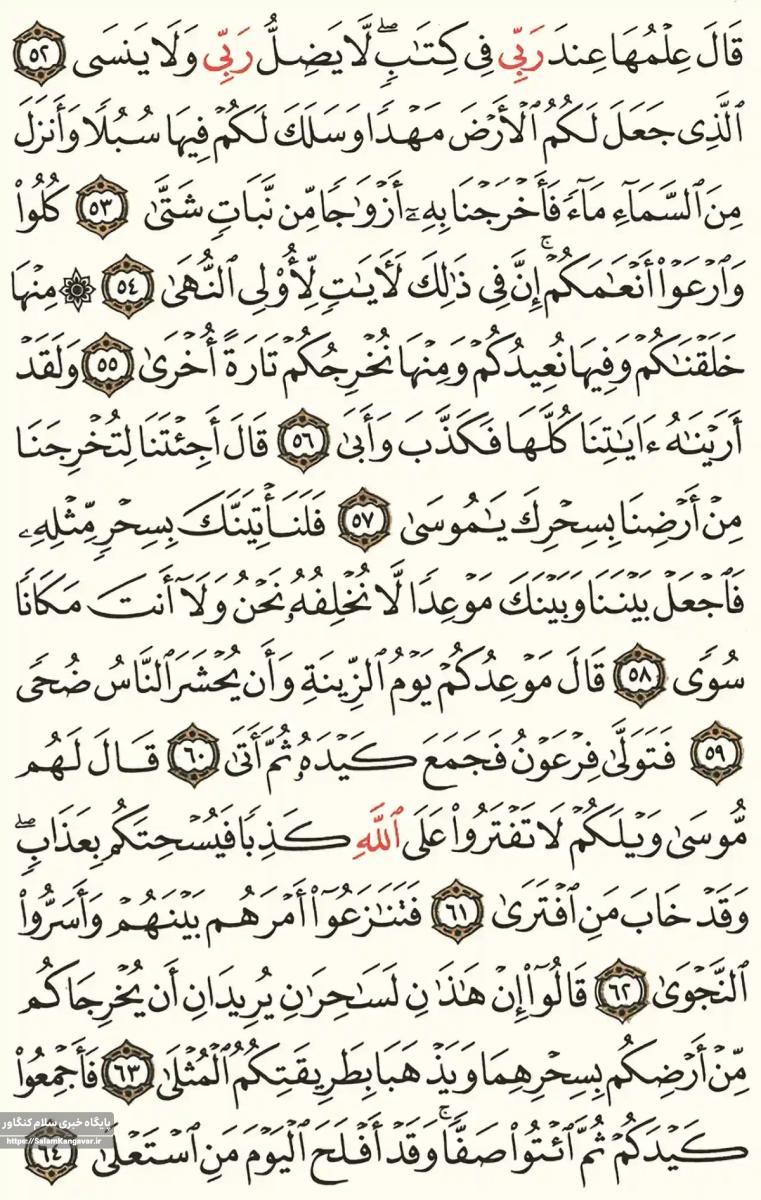 قَالَ عِلْمُهَا عِندَ رَبِّى فِى كِتَٰبٍۖ لَّا يَضِلُّ رَبِّى وَلَا يَنسَى ٥٢
ٱلَّذِى جَعَلَ لَكُمُ ٱلْأَرْضَ مَهْدًا وَسَلَكَ لَكُمْ فِيهَا سُبُلًا وَأَنزَلَ
مِنَ ٱلسَّمَآءِ مَآءً فَأَخْرَجْنَا بِهِۦٓ أَزْوَٰجًا مِّن نَّبَاتٍ شَتَّىٰ ٥٣ كُلُوا۟
وَٱرْعَوْا۟ أَنْعَٰمَكُمْۗ إِنَّ فِى ذَٰلِكَ لَءَايَٰتٍ لِّأُو۟لِى ٱلنُّهَىٰ ٥٤ ۞ مِنْهَا
خَلَقْنَٰكُمْ وَفِيهَا نُعِيدُكُمْ وَمِنْهَا نُخْرِجُكُمْ تَارَةً أُخْرَىٰ ٥٥ وَلَقَدْ
أَرَيْنَٰهُ ءَايَٰتِنَا كُلَّهَا فَكَذَّبَ وَأَبَىٰ ٥٦ قَالَ أَجِئْتَنَا لِتُخْرِجَنَا
مِنْ أَرْضِنَا بِسِحْرِكَ يَٰمُوسَىٰ ٥٧ فَلَنَأْتِيَنَّكَ بِسِحْرٍ مِّثْلِهِۦ
فَٱجْعَلْ بَيْنَنَا وَبَيْنَكَ مَوْعِدًا لَّا نُخْلِفُهُۥ نَحْنُ وَلَآ أَنتَ مَكَانًا
سُوًى ٥٨ قَالَ مَوْعِدُكُمْ يَوْمُ ٱلزِّينَةِ وَأَن يُحْشَرَ ٱلنَّاسُ ضُحًى
٥٩ فَتَوَلَّىٰ فِرْعَوْنُ فَجَمَعَ كَيْدَهُۥ ثُمَّ أَتَىٰ ٦٠ قَالَ لَهُم
مُّوسَىٰ وَيْلَكُمْ لَا تَفْتَرُوا۟ عَلَى ٱللَّهِ كَذِبًا فَيُسْحِتَكُم بِعَذَابٍۖ
وَقَدْ خَابَ مَنِ ٱفْتَرَىٰ ٦١ فَتَنَٰزَعُوٓا۟ أَمْرَهُم بَيْنَهُمْ وَأَسَرُّوا۟
ٱلنَّجْوَىٰ ٦٢ قَالُوٓا۟ إِنْ هَٰذَٰنِ لَسَٰحِرَٰنِ يُرِيدَانِ أَن يُخْرِجَاكُم
مِّنْ أَرْضِكُم بِسِحْرِهِمَا وَيَذْهَبَا بِطَرِيقَتِكُمُ ٱلْمُثْلَىٰ ٦٣ فَأَجْمِعُوا۟
كَيْدَكُمْ ثُمَّ ٱئْتُوا۟ صَفًّاۚ وَقَدْ أَفْلَحَ ٱلْيَوْمَ مَنِ ٱسْتَعْلَىٰ ٦٤
پایگاه خبری سلام کنگاور
https://SalamKangavar.ir